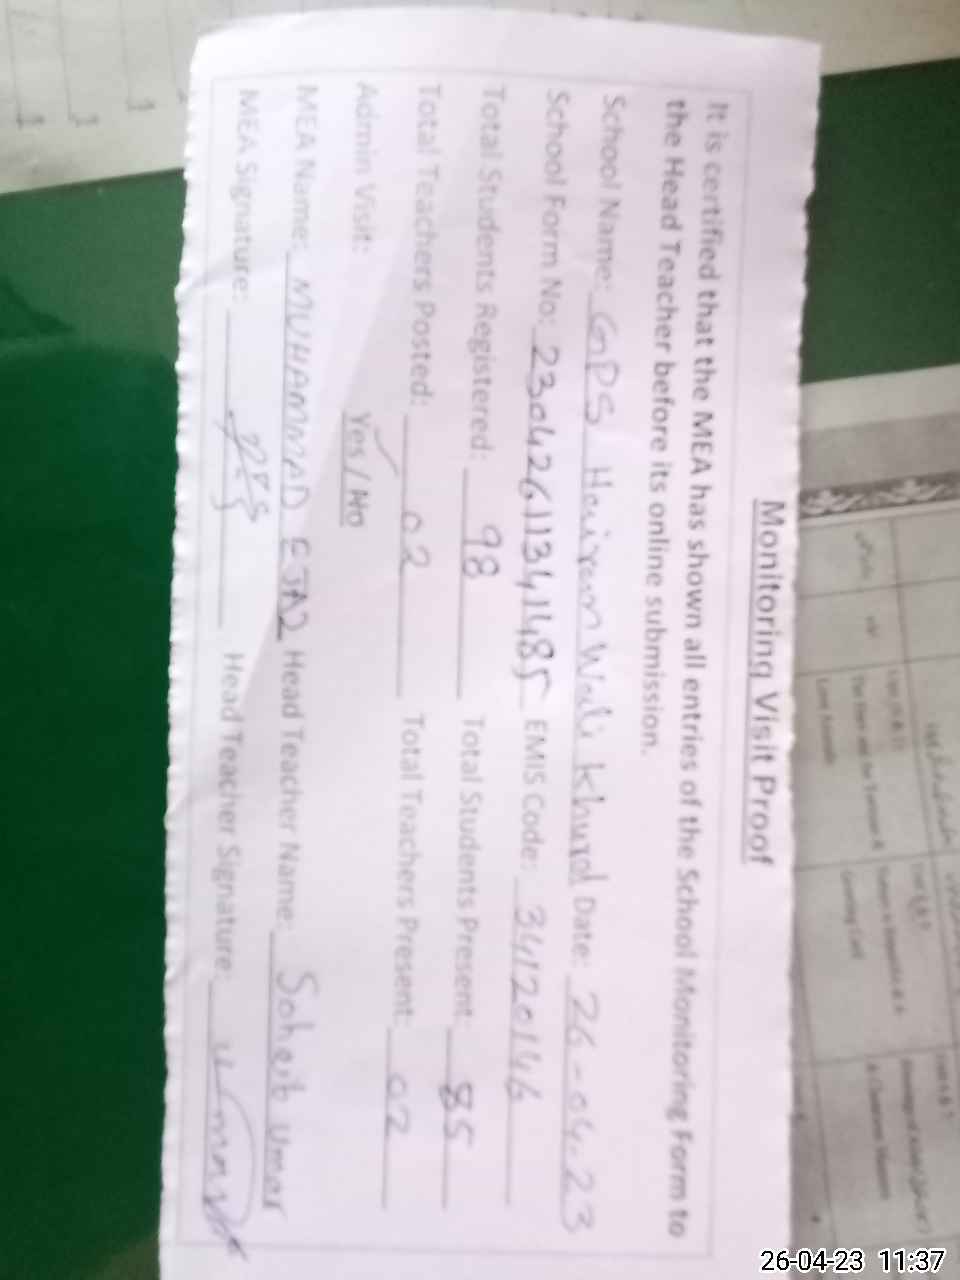 Monitoring Visit Proof
It is certified that the MEA has shown all entries of the School Monitoring Form to
the Head Teacher before its online submission.
School Name: GPS Wali Khurd Date: 26-04-23
School Form No: 23042611341485 EMIS Code: 34120146
Total Students Registered: 98 Total Students Present: 85
Total Teachers Posted: 02 Total Teachers Present: 02
Admin Visit: Yes / No
MEA Name: MUHAMMAD EJAZ Head Teacher Name: Soheib Umar
MEA Signature: Head Teacher Signature:
26-04-23 11:37